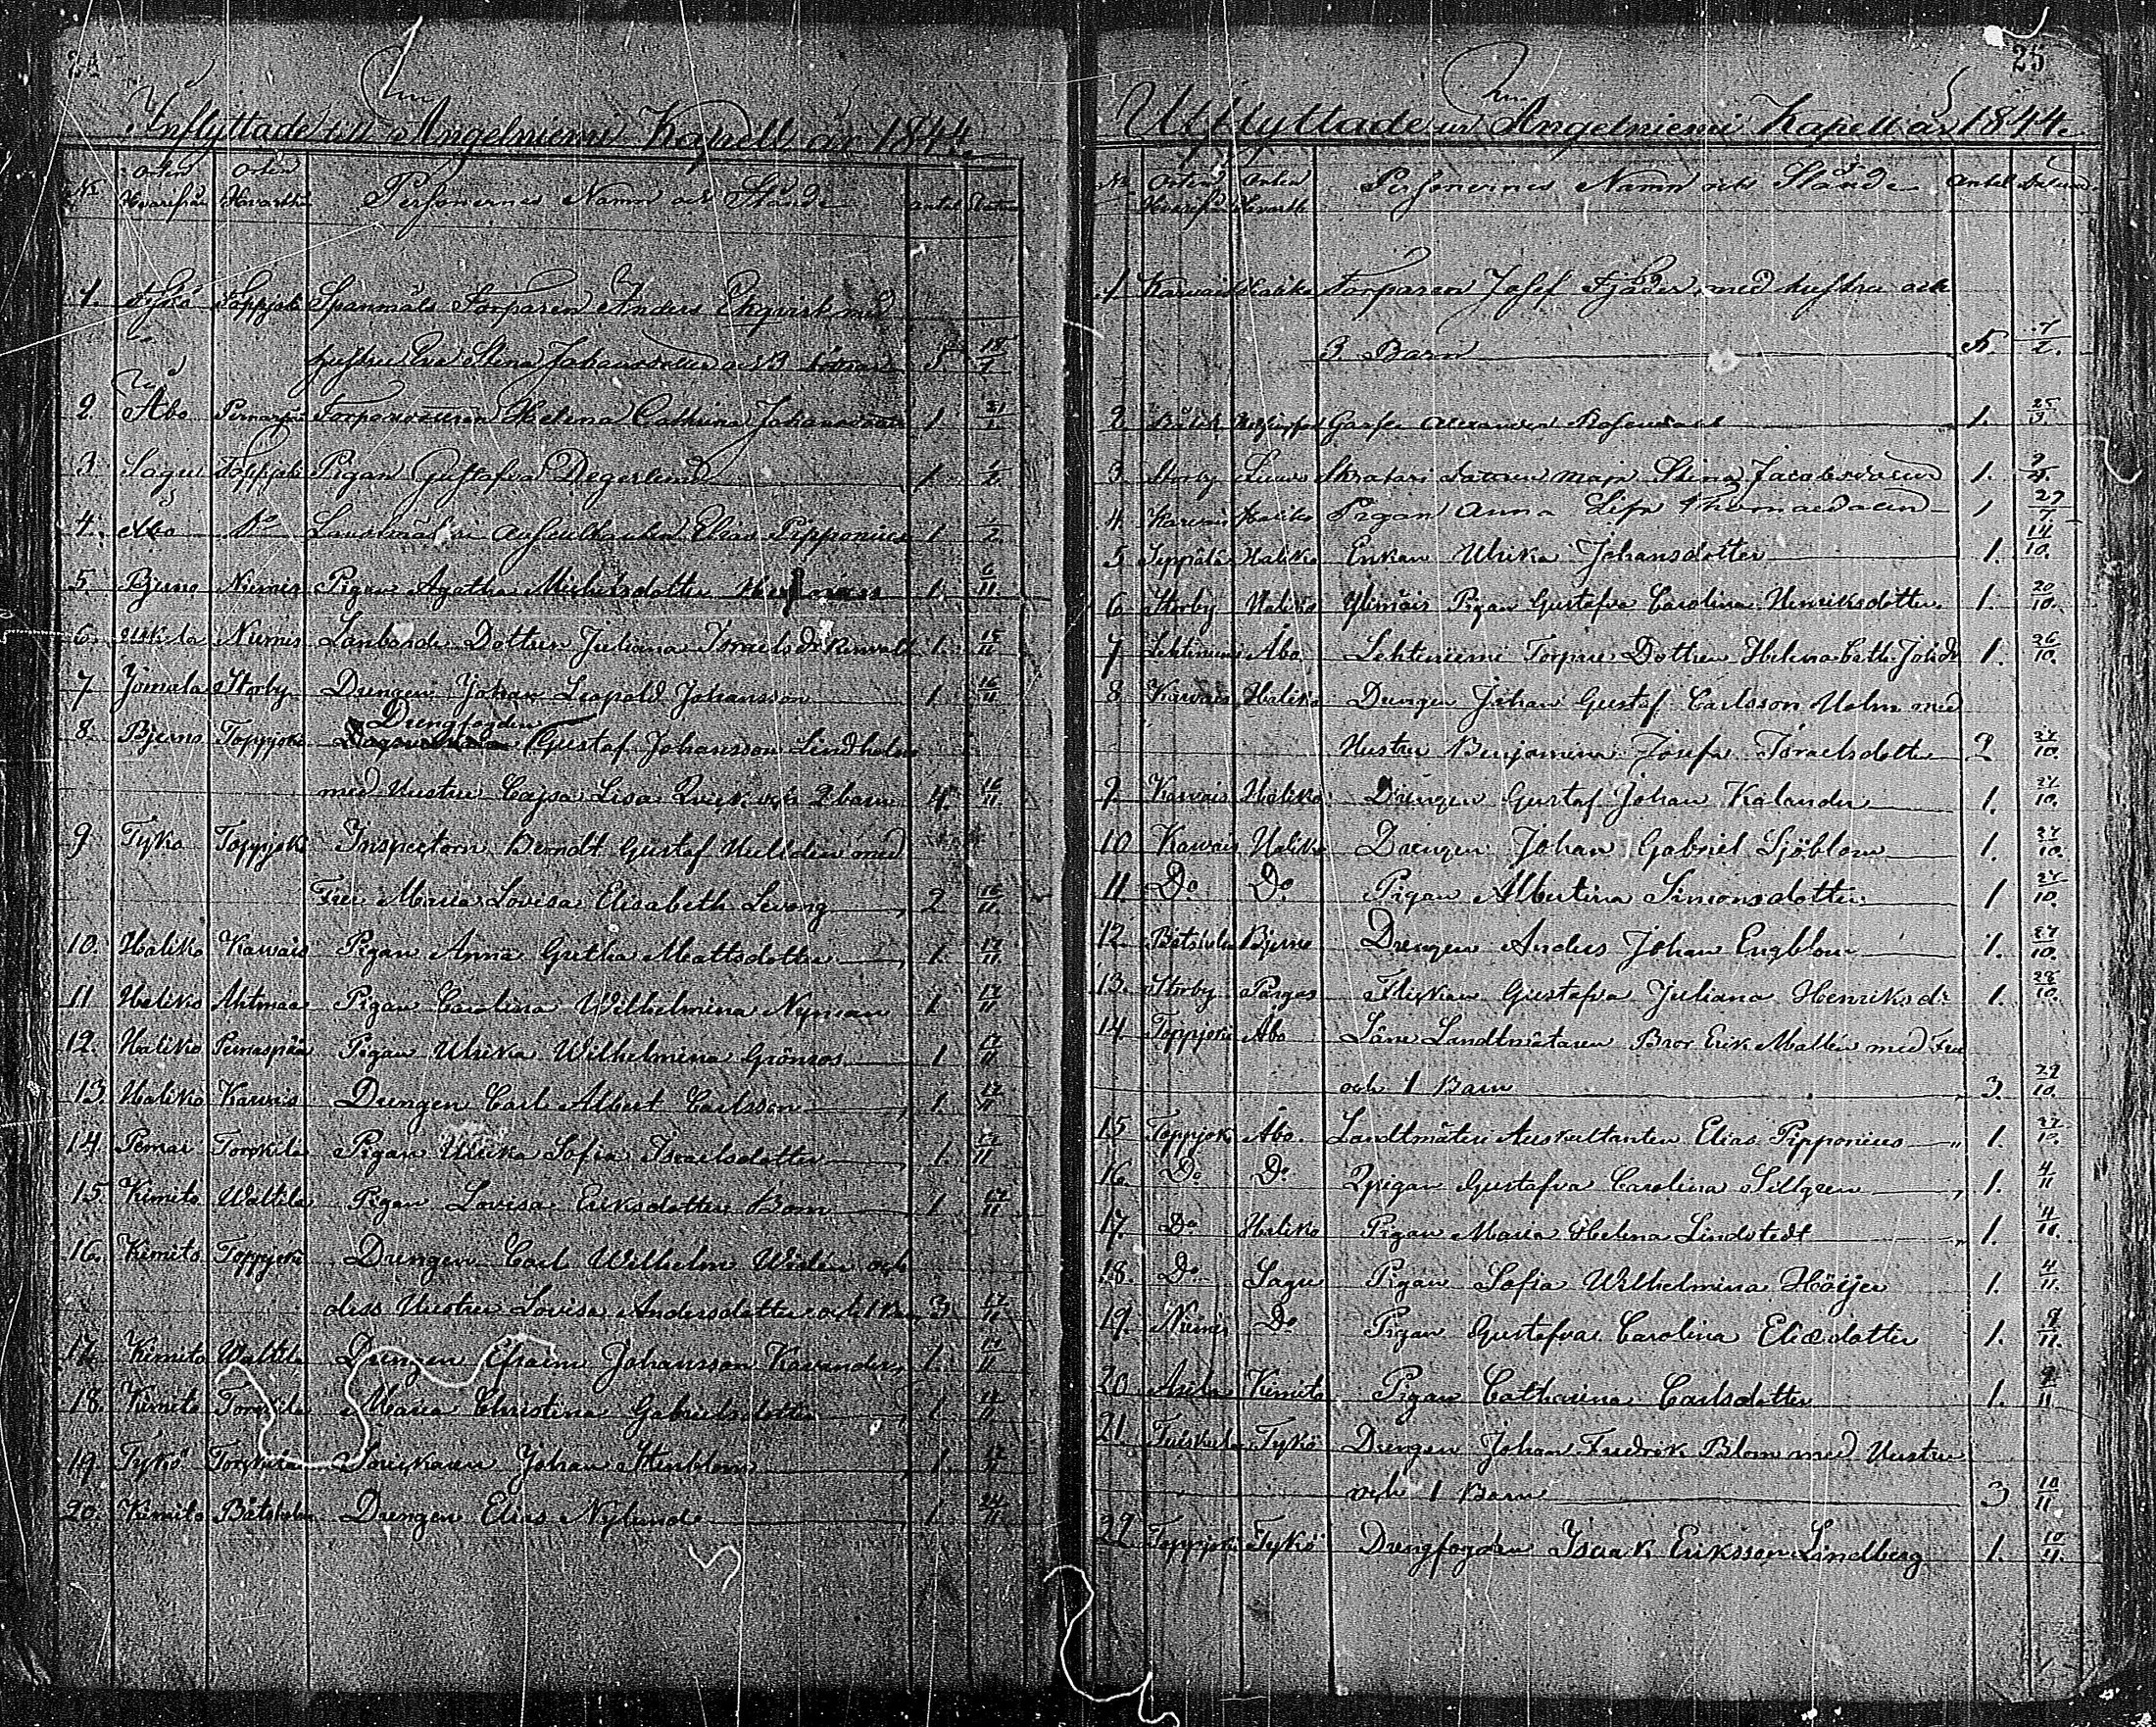 Inflyttade till Angelniemi Kapell år 1844.
No Orten Hvarifrån Orten Hvarthän Personernes Namn och Stånd Antal Datum
1 Tykö Toppjoki Spanmåls Torparen Anders Ekqvist med
hustru Eva Stina Johansdotter och 3 5.
2. Åbo Torpare Helena Cathrina Johansdotter 1
3 Sagu Toppjoki Pigan Gustafva Degerlund 1
4. Åbo Do Landtmäteri Auscultanten Elias Pipponius 1
5. Bjerno Niemis Pigan Agatha Michelsdotter 1. 6/11.
6. Uskela Niemis Dottren Juliana Israelsdr 1. 15/11
7. Jomala Storby Drengen Johan Leopold Johansson 1 16/11
8. Bjerno Toppjoki Drengfogden Gustaf Johansson Lindholm
med Hustru Cajsa Lisa Qvick och 2 barn 4. 16/11.
9. Tykö Toppjoki Inspectorn Berndt Gustaf Helldin med
Fru Maria Lovisa Elisabeth Levong 2 16/11.
10. Haliko Karvais Pigan Anna Gretha Mattsdotter 1. 17/11.
11 Haliko Ahtmaa Pigan Carolina Wilhelmina Nyman 1 17/11
12. Haliko Pernaspää Pigan Ulrika Wilhelmina Grönroos 1 17/11
13. Haliko Karvais Drengen Carl Albert Carlsson 1. 17/11
14. Pemar Torkkila Pigan Ulrika Sofia Israelsdotter 1. 17/11
15. Kimito Waltila Pigan Lovisa Eriksdotter Bom 1 17/11
16. Kimito Toppjoki Drengen Carl Wilhelm Widen och
dess Hustru Lovisa Andersdotter och 1 Barn 3 17/11
17. Kimito Waltila Drengen Efraim Johansson Kavander 1. 17/11
18. Kimito Torkkila Maria Christina Gabrielsdotter 1
19 Tykö Torkkila Snickaren Johan Stenblom 1. 17/11
20. Kimito Båtskula Drengen Elias Nylund 1. 24/11.
25
Utflyttade ur Angelniemi Kapell år 1844.
No Orten Hvarifrån Orten Hvarthän Personernes Namn och Stånd Antal Datum
1 Karvais Haliko Torparen Josef Fjäder med hustru och
3 Barn 5. 7/2.
2. Alexander Rosendahl 1. 25/3.
3 Storby dottren Maja Stina Jacobsdotter 1.
4. Karvais Haliko Pigan Anna Lisa Thomasdotter 1 29/7
5 Seppälä Haliko Enkan Ulrika Johansdotter 1. 14/10.
6 Storby Haliko Pigan Gustafva Carolina Henriksdotter 1. 20/10.
7 Lehtiniemi Åbo Lehtiniemi Torpare Dottren Helena Cath. Johdr 1. 26/10.
8 Karvais Haliko Drengen Johan Gustaf Carlsson Holm med
Hustru Benjamina Josefa Israelsdotter 2 27/10.
9. Karvais Haliko Drengen Gustaf Johan Kalander 1. 27/10.
10 Karvais Haliko Drengen Johan Gabriel Sjöblom 1. 27/10.
11. Do Do Pigan Albertina Simonsdotter 1 27/10.
12 Båtskula Bjerno Drengen Anders Johan Engblom 1. 27/10.
13. Storby Pargas Flickan Gustafva Juliana Henriksdr 1. 28/10.
14 Toppjoki Åbo Läne Landtmätaren Bror Erik Mallen med Fru
och 1 Barn 3 29/10.
15 Toppjoki Åbo. Landtmäteri Auskultanten Elias Pipponius 1. 29/10.
16. Do Do Pigan Gustafva Carolina Sillgren 1. 4/11
17. Do Haliko Pigan Maria Helena Lindstedt 1. 4/11.
18. Do Sagu Pigan Sofia Wilhelmina Höijer 1. 4/11.
19. Niemis Do Pigan Gustafva Carolina Eliædotter 1. 9/11.
20 Asila Kimito Pigan Catharina Carlsdotter 1. 9/11
21 Tuiskula Tykö Drengen Johan Fredrik Blom med Hustru
och 1 Barn 3 10/11.
22 Toppjoki Tykö Drengfogden Isaak Eriksson Lindberg 1. 10/11.